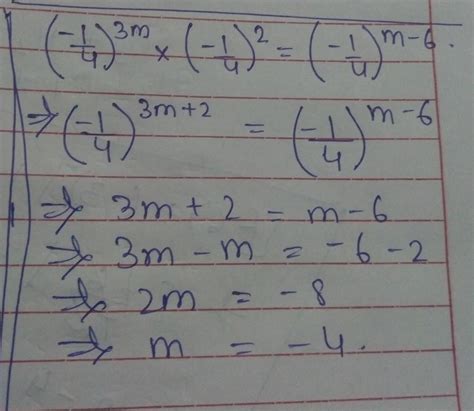 (-1/4)^3m × (-1/4)^2 = (-1/4)^m-6.
⇒ (-1/4)^3m+2 = (-1/4)^m-6
⇒ 3m + 2 = m-6
⇒ 3m - m = -6-2
⇒ 2m = -8
⇒ m = -4.